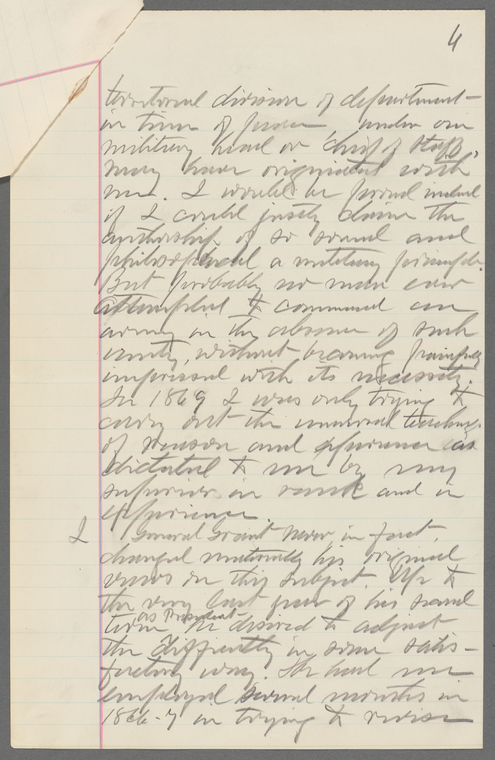 4
territorial division of department
in time of peace, under one
military head or "chief of staff"
may have originated with
me. I would be proud indeed
if I could justly claim the
authorship of so sound and
philosophical a military principle.
But probably no man ever
attempted to command an
army in the absence of such
unity, without becoming painfully
impressed with its necessity.
In 1869 I was only trying to
carry out the universal teachings
of reason and experience as
dictated to me by my
superior in rank and in
experience.
I General Grant never, in fact,
changed materially his original
views on this subject. Up to
the very last year of his second
as President
term he desired to adjust
the difficulty in some satis-
factory way. He had me
employed several months in
1866-7 in trying to revise